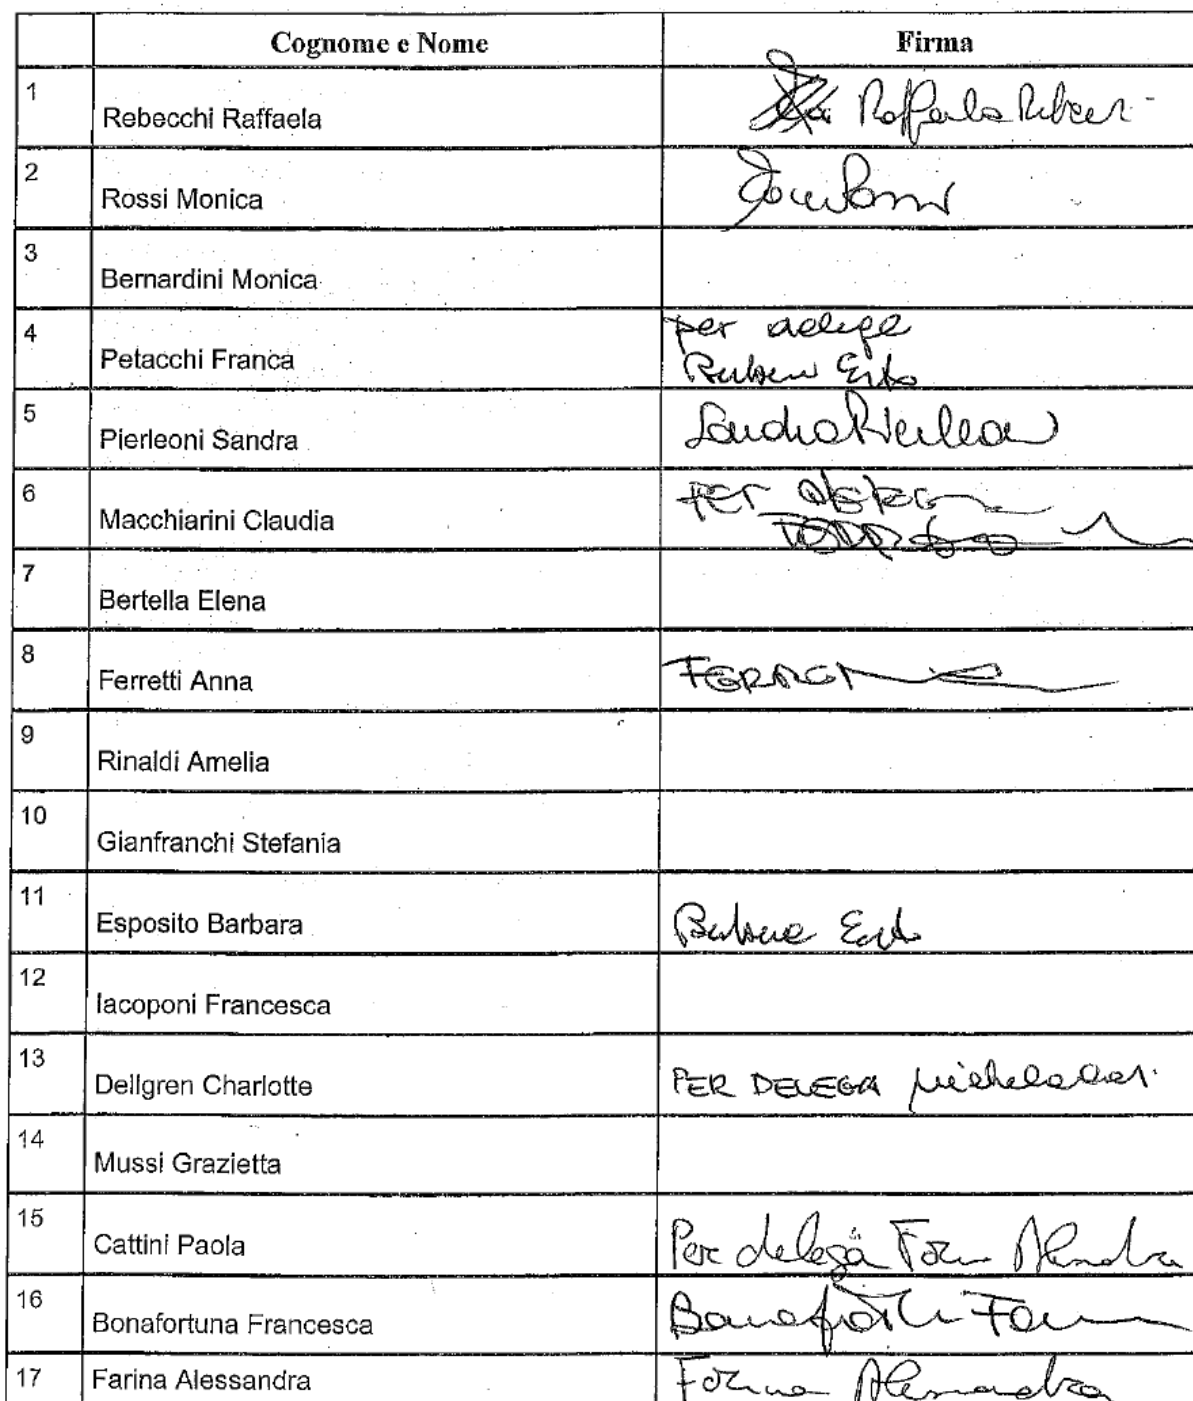 Cognome e Nome Firma
1 Rebecchi Raffaela Raffaela
2 Rossi Monica
3 Bernardini Monica
4 Petacchi Franca per delega
5 Pierleoni Sandra Sandra Pierleoni
6 Macchiarini Claudia per delega
7 Bertella Elena
8 Ferretti Anna
9 Rinaldi Amelia
10 Gianfranchi Stefania
11 Esposito Barbara
12 Iacoponi Francesca
13 Dellgren Charlotte PER DELEGA
14 Mussi Grazietta
15 Cattini Paola Per delega
16 Bonafortuna Francesca
17 Farina Alessandra Farina Alessandra